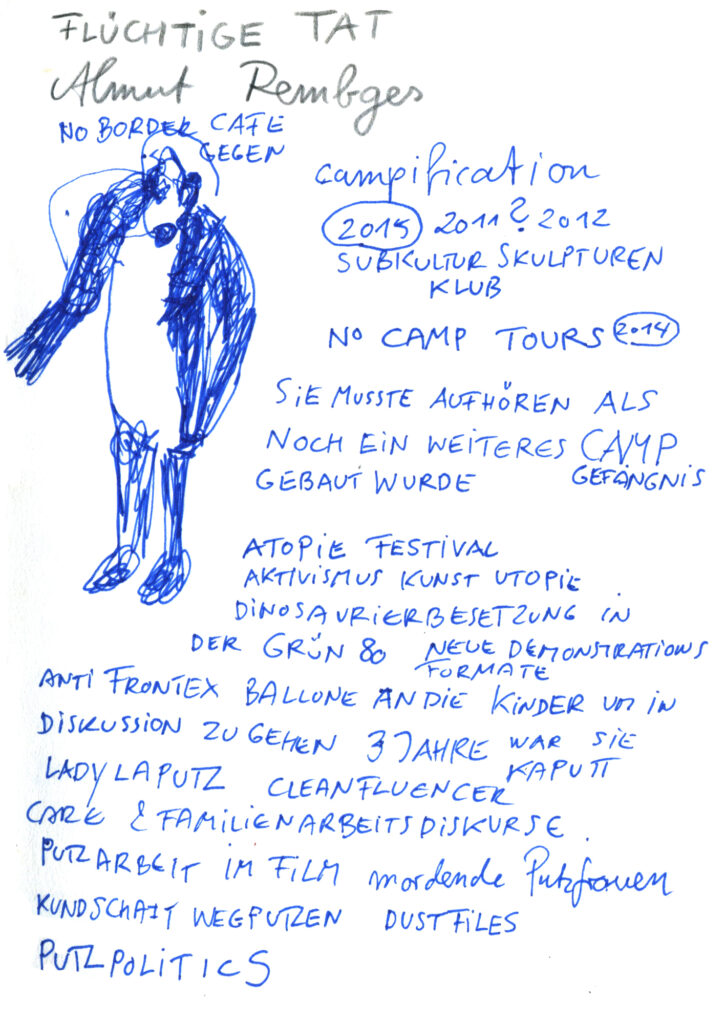 FLÜCHTIGE TAT
Almut Rembges
NO BORDER CAFE
GEGEN
campification
2015 2011? 2012
SUBKULTUR SKULPTUREN
KLUB
NO CAMP TOURS 2014
SIE MUSSTE AUFHÖREN ALS
NOCH EIN WEITERES CAMP
GEBAUT WURDE GEFÄNGNIS
ATOPIE FESTIVAL
AKTIVISMUS KUNST UTOPIE
DINOSAURIERBESETZUNG IN
DER GRÜN 80 NEUE DEMONSTRATIONS
FORMATE
ANTI FRONTEX BALLONE AN DIE KINDER UM IN
DISKUSSION ZU GEHEN 3 JAHRE WAR SIE
KAPUTT
LADY LAPUTZ CLEANFLUENCER
CARE & FAMILIENARBEITSDISKURSE.
PUTZARBEIT IM FILM mordende Putzfrauen
KUNDSCHAFT WEGPUTZEN DUSTFILES
PUTZPOLITICS